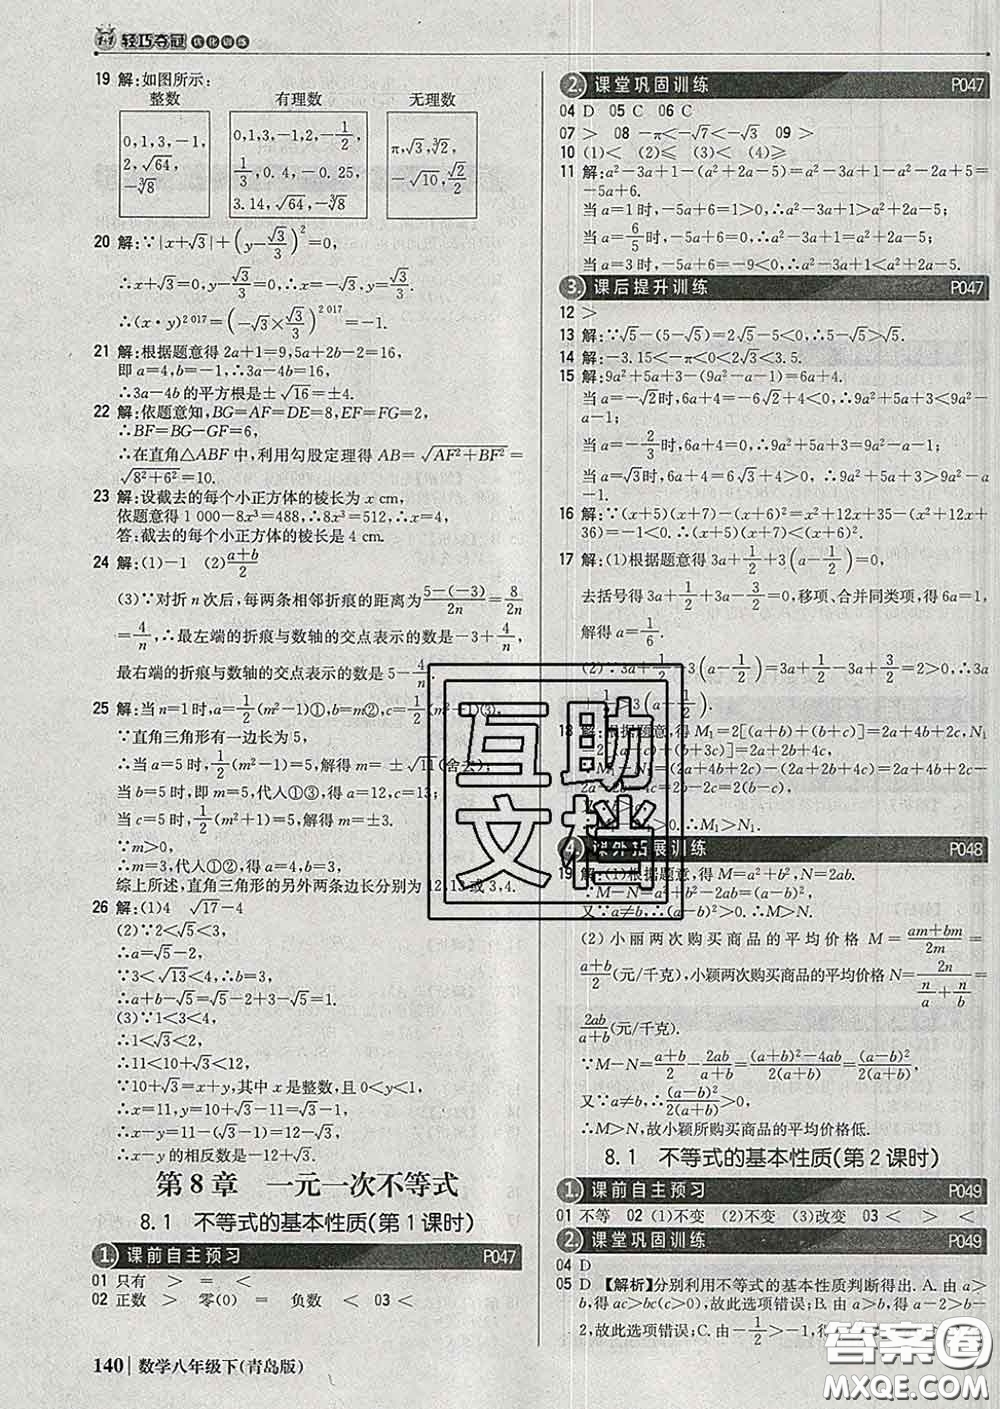 1+1 轻巧夺冠 优化训练
19 解:如图所示:
整数 有理数 无理数
0,1,3,-1,
2,√64,
-∛8
0,1,3,-1,2,-1/2,
1/3,0.4,-0.25,
3.14,√64,-∛8
π,√3,∛2,
-√10,√2/2
20 解:∵|x+√3|+(y-√3/3)²=0,
∴x+√3=0,y-√3/3=0,∴x=-√3,y=√3/3.
∴(x·y)^2 017=(-√3×√3/3)^2 017=-1.
21 解:根据题意得 2a+1=9,5a+2b-2=16,
即 a=4,b=-1,∴3a-4b=16,
∴3a-4b 的平方根是±√16=±4.
22 解:依题意知,BG=AF=DE=8,EF=FG=2,
∴BF=BG-GF=6,
∴在直角△ABF 中,利用勾股定理得 AB=√(AF²+BF²)=
√(8²+6²)=10.
23 解:设截去的每个小正方体的棱长为 x cm,
依题意得 1 000-8x³=488,∴8x³=512,∴x=4,
答:截去的每个小正方体的棱长是 4 cm.
24 解:(1)-1 (2)(a+b)/2
(3)∵对折 n 次后,每两条相邻折痕的距离为(5-(-3))/2n=8/2n
=4/n,∴最左端的折痕与数轴的交点表示的数是-3+4/n,
最右端的折痕与数轴的交点表示的数是 5-4/n.
25 解:当 n=1 时,a=1/2(m²-1)①,b=m②,c=1/2(m²+1)③,
∵直角三角形有一边长为 5,
∴当 a=5 时,1/2(m²-1)=5,解得 m=±√11(舍去),
当 b=5 时,即 m=5,代人①③,得 a=12,c=13;
当 c=5 时,1/2(m²+1)=5,解得 m=±3.
∵m>0,
∴m=3,代人①②,得 a=4,b=3,
综上所述,直角三角形的另外两条边长分别为 12,13 或 3,4.
26 解:(1)4 √17-4
(2)∵2<√5<3,
∴a=√5-2,
∵3<√13<4,∴b=3,
∴a+b-√5=√5-2+3-√5=1.
(3)∵1<3<4,
∴1<√3<2,
∴11<10+√3<12,
∵10+√3=x+y,其中 x 是整数,且 0<y<1,
∴x=11,y=10+√3-11=√3-1,
∴x-y=11-(√3-1)=12-√3,
∴x-y 的相反数是-12+√3.
第 8 章 一元一次不等式
8.1 不等式的基本性质(第 1 课时)
1. 课前自主预习 P047
01 只有 > = <
02 正数 > 零(0) = 负数 < 03 <
140 数学八年级下(青岛版)
2. 课堂巩固训练 P047
04 D 05 C 06 C
07 > 08 -π<-√7<-√3 09 >
10 (1)< (2)≤ (3)< (4)≥
11 解:a²-3a+1-(a²+2a-5)=a²-3a+1-a²-2a+5=
-5a+6.
当 a=1 时,-5a+6=1>0,∴a²-3a+1>a²+2a-5;
当 a=6/5 时,-5a+6=0,∴a²-3a+1=a²+2a-5;
当 a=3 时,-5a+6=-9<0,∴a²-3a+1<a²+2a-5.
3. 课后提升训练 P047
12 >
13 解:∵√5-(5-√5)=2√5-5<0,∴5-√5>√5.
14 解:-3.15<-π<0<2√3<3.5.
15 解:9a²+5a+3-(9a²-a-1)=6a+4.
当 a=-√2时,6a+4=-6√2+4<0,∴9a²+5a+3<9a²-
a-1;
当 a=-2/3时,6a+4=0,∴9a²+5a+3=9a²-a-1;
当 a=√3时,6a+4=6√3+4>0,∴9a²+5a+3>9a²-a
-1.
16 解:∵(x+5)(x+7)-(x+6)²=x²+12x+35-(x²+12x+
36)=-1<0,∴(x+5)(x+7)<(x+6)².
17 解:(1)根据题意得 3a+1/2+3(a-1/2)=0,
去括号得 3a+1/2+3a-3/2=0,移项、合并同类项,得 6a=1,
解得 a=1/6.
(2)∵3a+1/2-3(a-1/2)=3a+1/2-3a+3/2=2>0,∴3a
+1/2>3(a-1/2).
18 解:根据题意,得 M₁=2[(a+b)+(b+c)]=2a+4b+2c,N₁
=2[(a-c)+(b+3c)]=2a+2b+4c,
∴M₁-N₁=(2a+4b+2c)-(2a+2b+4c)=2a+4b+2c-
2a-2b-4c=2b-2c=2(b-c),
∵b>c,∴2(b-c)>0,∴M₁>N₁.
4. 课外拓展训练 P048
19 解:(1)根据题意,得 M=a²+b²,N=2ab.
∵M-N=a²+b²-2ab=(a-b)²,
又∵a≠b,∴(a-b)²>0.∴M>N.
(2)小丽两次购买商品的平均价格 M=(am+bm)/2m=
(a+b)/2(元/千克),小颖两次购买商品的平均价格 N=2n/(n/a+n/b)=
2ab/(a+b)(元/千克).
∵M-N=(a+b)/2-2ab/(a+b)=((a+b)²-4ab)/2(a+b)=(a-b)²/2(a+b),
又∵a≠b,∴(a-b)²/2(a+b)>0,
∴M>N,故小颖所购买商品的平均价格低.
8.1 不等式的基本性质(第 2 课时)
1. 课前自主预习 P049
01 不等 02 (1)不变 (2)不变 (3)改变 03 < > <
2. 课堂巩固训练 P049
04 D
05 D 【解析】分别利用不等式的基本性质判断得出. A. 由 a>
b,得 ac>bc(c>0),故此选项错误;B. 由 a>b,得 a-2>b-
2,故此选项错误;C. 由-1/2>-1,得
互助
文档
答案圈
MXQE.COM